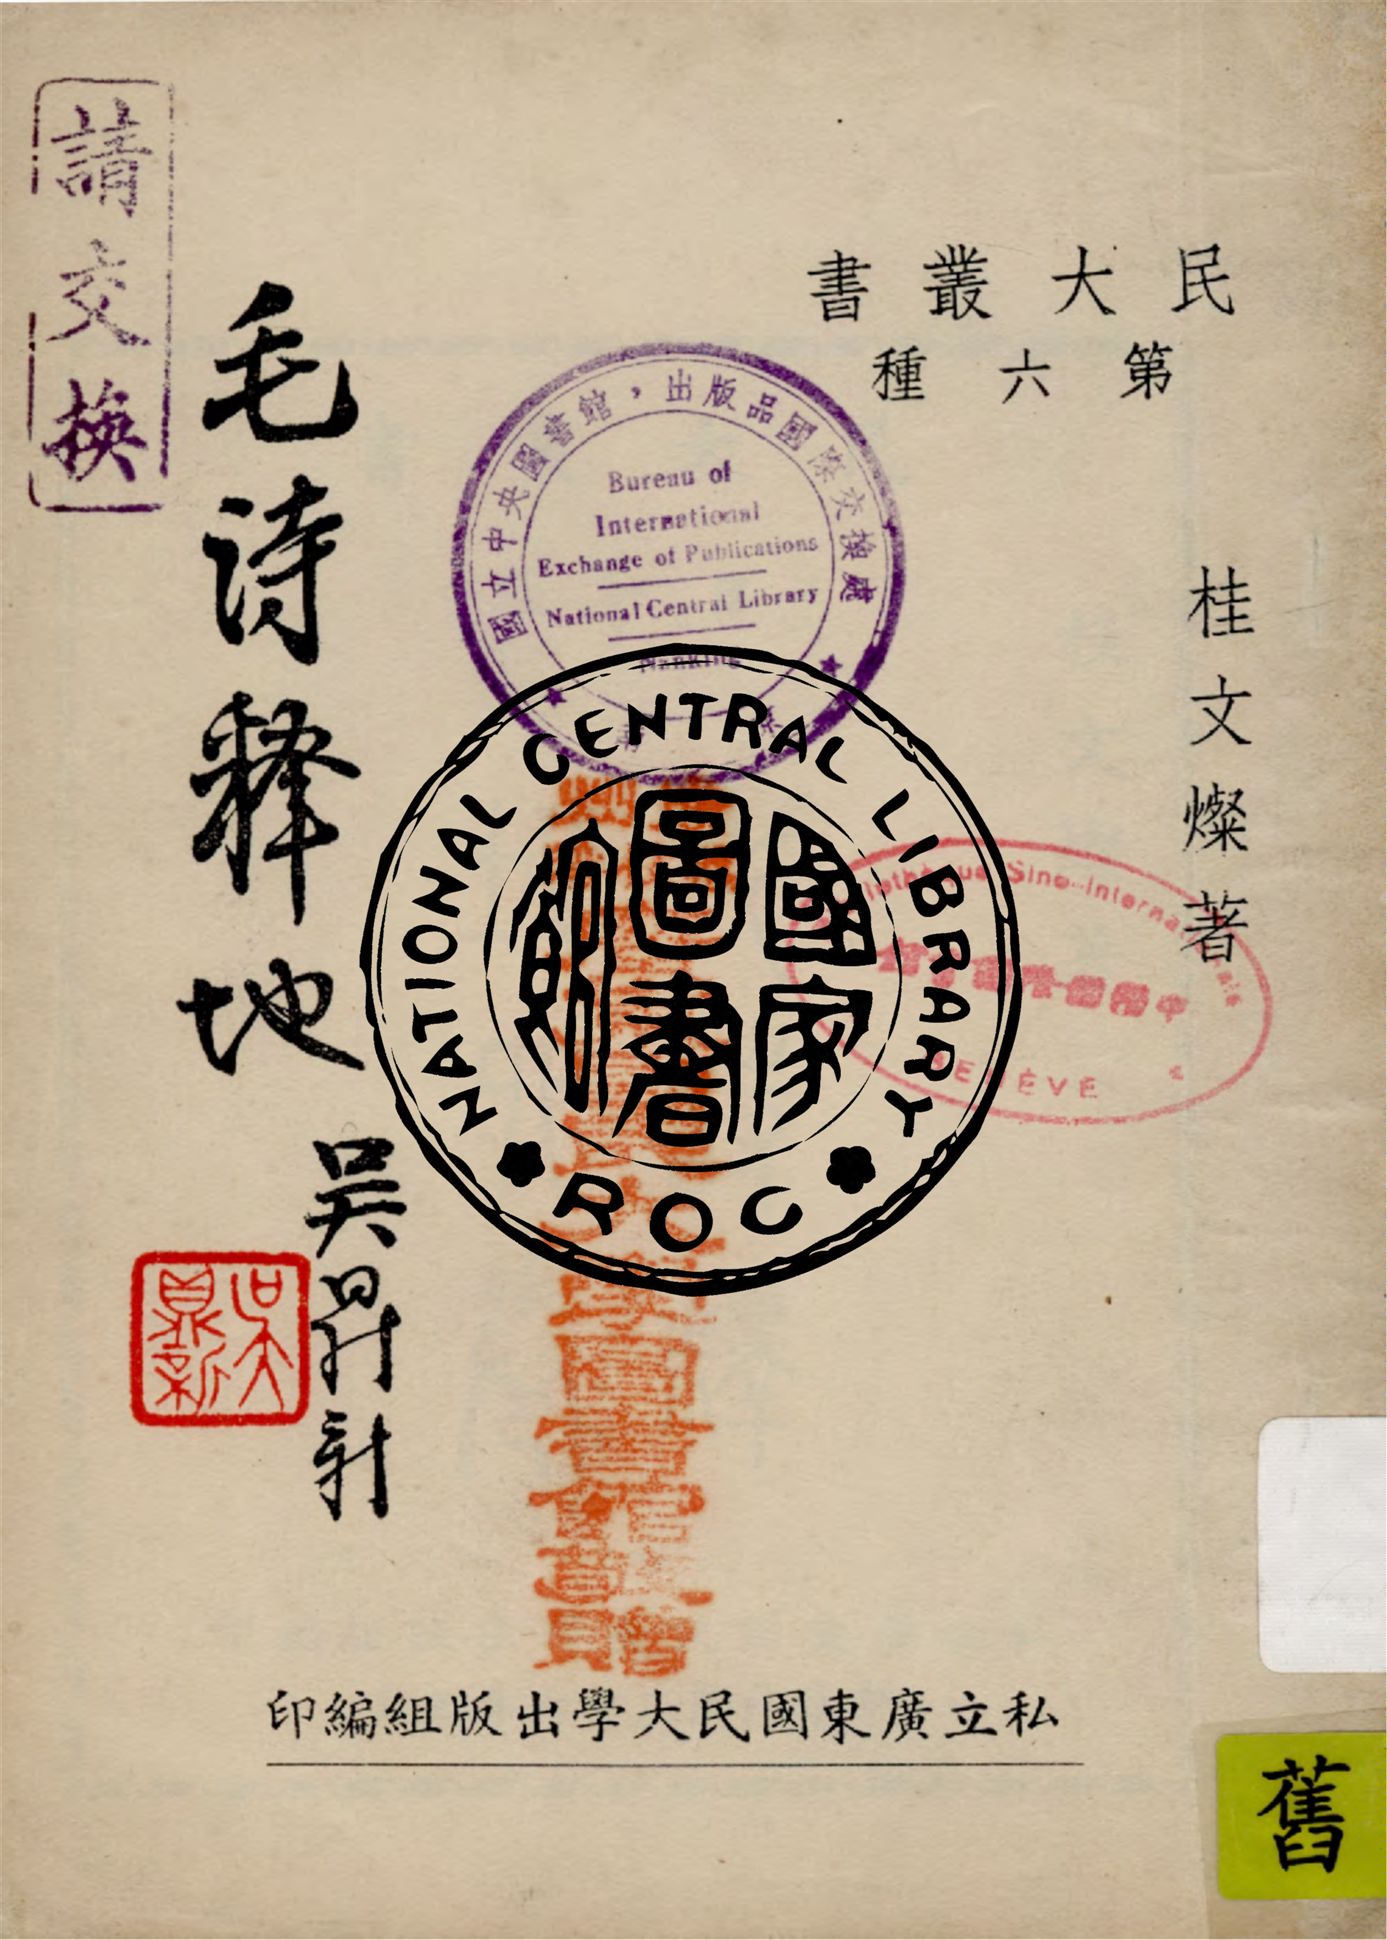 民大叢書
第六種
桂文燦著
毛詩釋地
吳鼎新
吳鼎新
私立廣東國民大學出版組編印
請交換
國立中央圖書館，出版品國際交換處
Bureau of
International
Exchange of Publications
National Central Library
Nanking
NATIONAL CENTRAL LIBRARY
ROC
國家
圖書
館
Sino-Internationale
GENÈVE
大學圖書館敬贈
舊